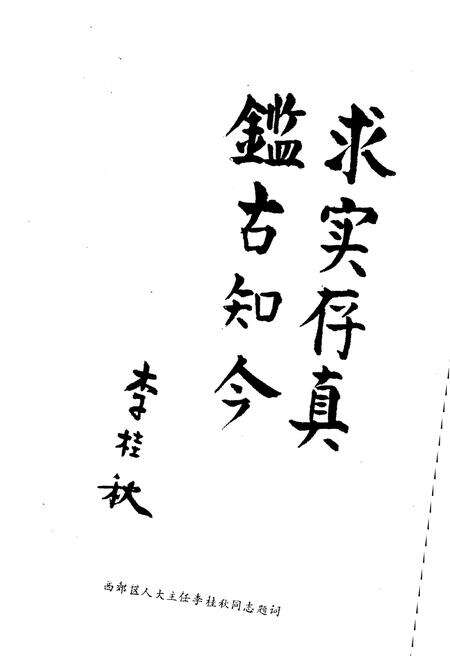 求实存真
鑑古知今
李桂秋
西郊区人大主任李桂秋同志题词